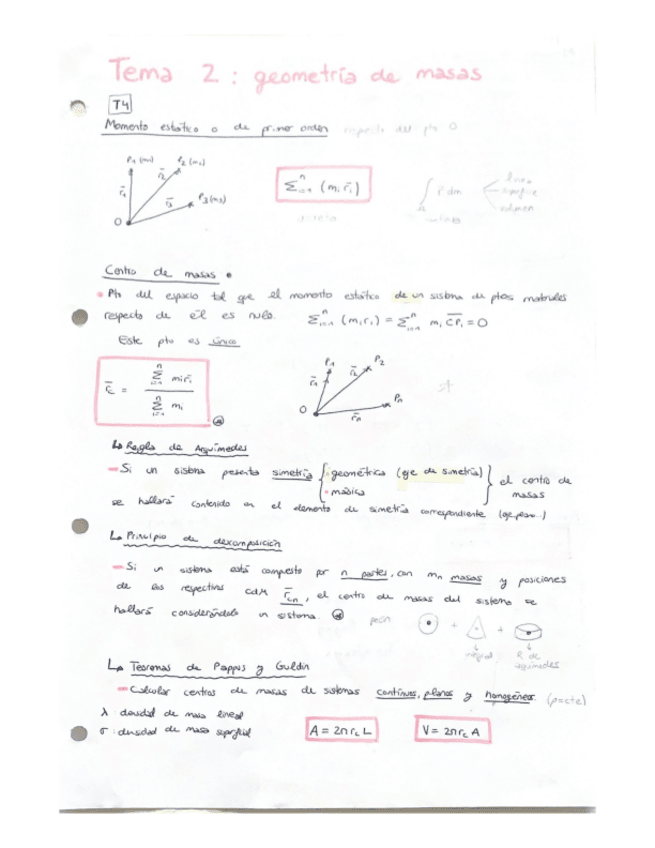 Tema 2: geometría de masas
T4
Momento estático o de primer orden respecto del pto O
P₁ (m₁) P₂ (m₂) P₃ (m₃)
r̄₁ r̄₂ r̄₃ O
Σⁿᵢ₌₁ (mᵢ r̄ᵢ)
∫ r̄ dm línea superficie volumen
Centro de masas
Pto del espacio tal que el momento estático de un sistema de ptos materiales
respecto de él es nulo. Σⁿᵢ₌₁ (mᵢ rᵢ) = Σⁿᵢ₌₁ mᵢ CPᵢ = 0
Este pto es único
r̄c = Σⁿᵢ₌₁ mᵢ r̄ᵢ / Σⁿᵢ₌₁ mᵢ
P₁ P₂ Pₙ
r̄₁ r̄₂ r̄ₙ O
↳ Regla de Arquímedes
Si un sistema presenta simetría { geométrica (eje de simetría) } el centro de
masas
másica
se hallará contenido en el elemento de simetría correspondiente (eje, plano...)
↳ Principio de descomposición
Si un sistema está compuesto por n partes, con mₙ masas y posiciones
de los respectivos cdM r̄cₙ, el centro de masas del sistema se
hallará considerándolo un sistema.
peón + +
R. de
arquímedes
↳ Teoremas de Pappus y Guldin
Calcular centros de masas de sistemas continuos, planos y homogéneos (ρ=cte)
λ densidad de masa lineal
σ: densidad de masa superficial
A = 2π rc L
V = 2π rc A